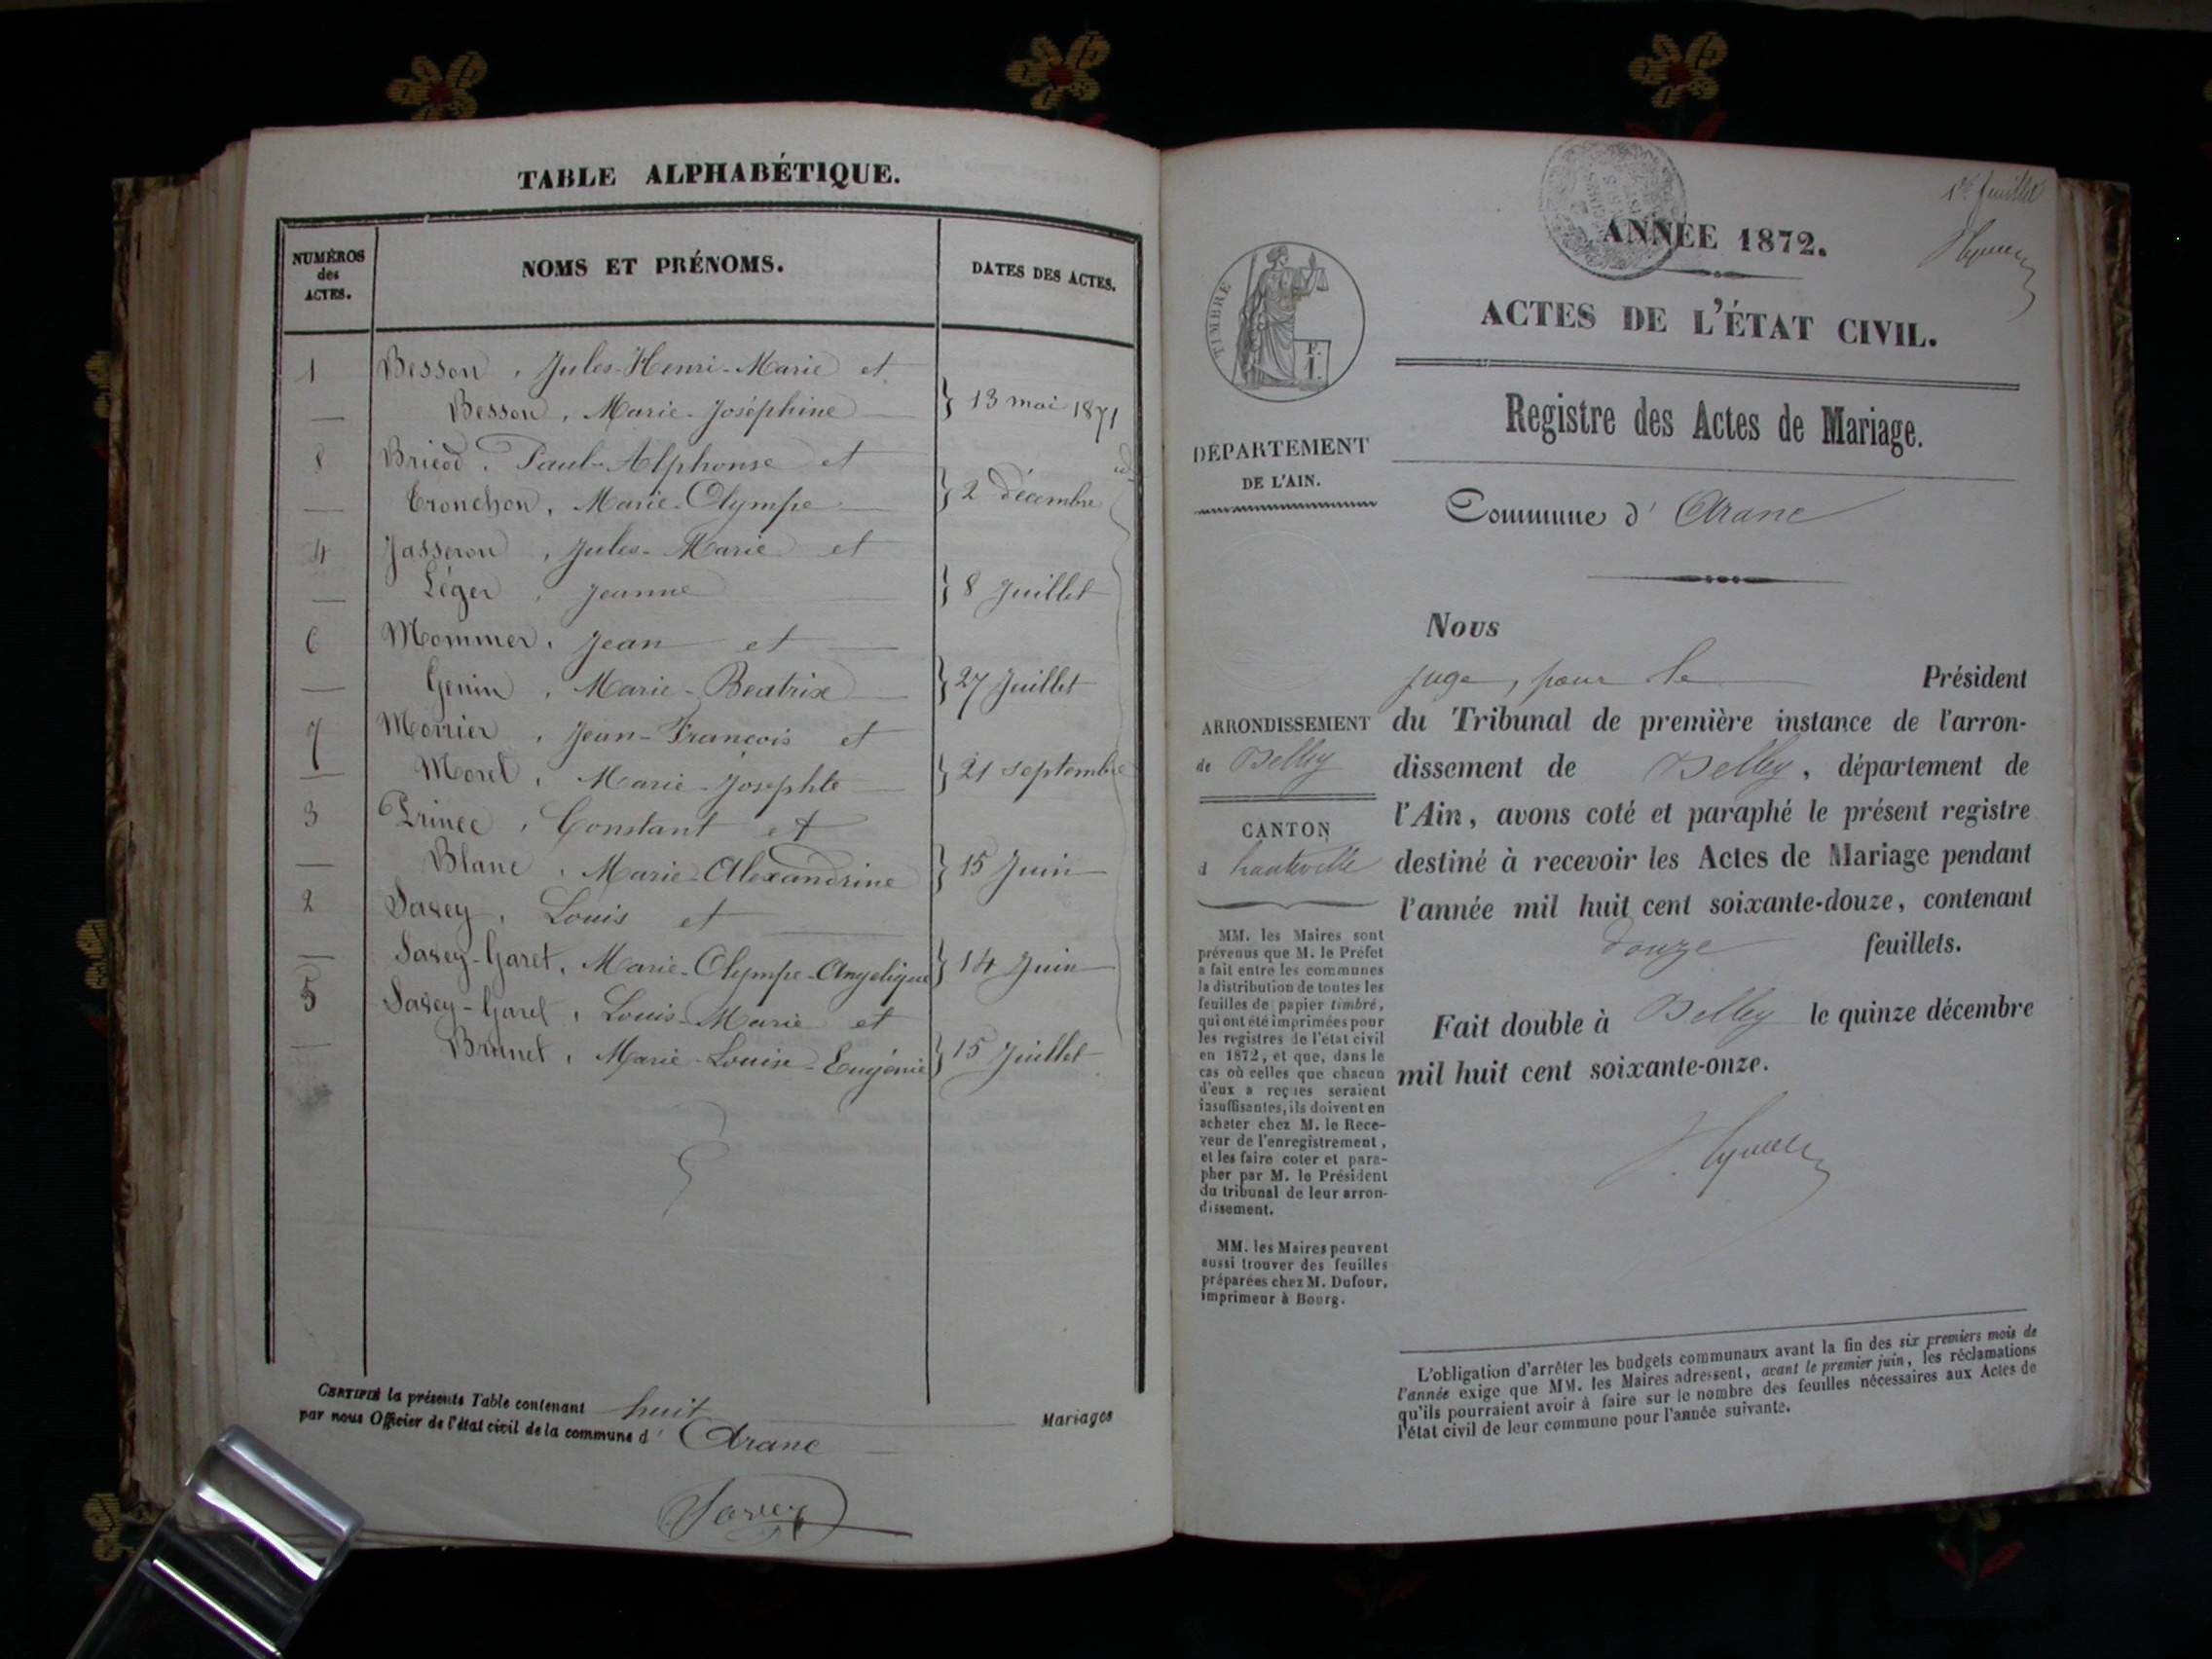 TABLE ALPHABÉTIQUE.
NUMÉROS
des
ACTES.
NOMS ET PRÉNOMS.
DATES DES ACTES.
1 Besson, Jules-Henri-Marie et
— Besson, Marie-Joséphine — } 13 mai 1871
8 Bricod, Paul-Alphonse et
— Tronchon, Marie-Olympe — } 2 décembre id
4 Jasseron, Jules-Marie et
— Léger, Jeanne — } 8 Juillet
6 Mommer, Jean et —
— Genin, Marie-Beatrix — } 27 Juillet
7 Morrier, Jean-François et
— Morel, Marie-Josephte — } 21 septembre
3 Prince, Constant et
— Blanc, Marie-Alexandrine } 15 Juin
2 Savey, Louis et —
— Savey-Garet, Marie-Olympe-Angelique } 14 Juin
5 Savey-Garet, Louis-Marie et
— Brunet, Marie-Louise-Eugénie } 15 Juillet
CERTIFIÉ la présente Table contenant huit Mariages
par nous Officier de l'état civil de la commune d' Aranc
Savey
1er feuillet
ANNÉE 1872.
ACTES DE L'ÉTAT CIVIL.
TIMBRE
F.
1.
Registre des Actes de Mariage.
DÉPARTEMENT
DE L'AIN.
Commune d' Aranc
Nous
juge, pour le Président
ARRONDISSEMENT
de Belley
CANTON
d hauteville
du Tribunal de première instance de l'arron-
dissement de Belley, département de
l'Ain, avons coté et paraphé le présent registre
destiné à recevoir les Actes de Mariage pendant
l'année mil huit cent soixante-douze, contenant
douze feuillets.
Fait double à Belley le quinze décembre
mil huit cent soixante-onze.
MM. les Maires sont
prévenus que M. le Préfet
a fait entre les communes
la distribution de toutes les
feuilles de papier timbré,
qui ont été imprimées pour
les registres de l'état civil
en 1872, et que, dans le
cas où celles que chacun
d'eux a reçues seraient
insuffisantes, ils doivent en
acheter chez M. le Rece-
veur de l'enregistrement,
et les faire coter et para-
pher par M. le Président
du tribunal de leur arron-
dissement.
MM. les Maires peuvent
aussi trouver des feuilles
préparées chez M. Dufour,
imprimeur à Bourg.
L'obligation d'arrêter les budgets communaux avant la fin des six premiers mois de
l'année exige que MM. les Maires adressent, avant le premier juin, les réclamations
qu'ils pourraient avoir à faire sur le nombre des feuilles nécessaires aux Actes de
l'état civil de leur commune pour l'année suivante.